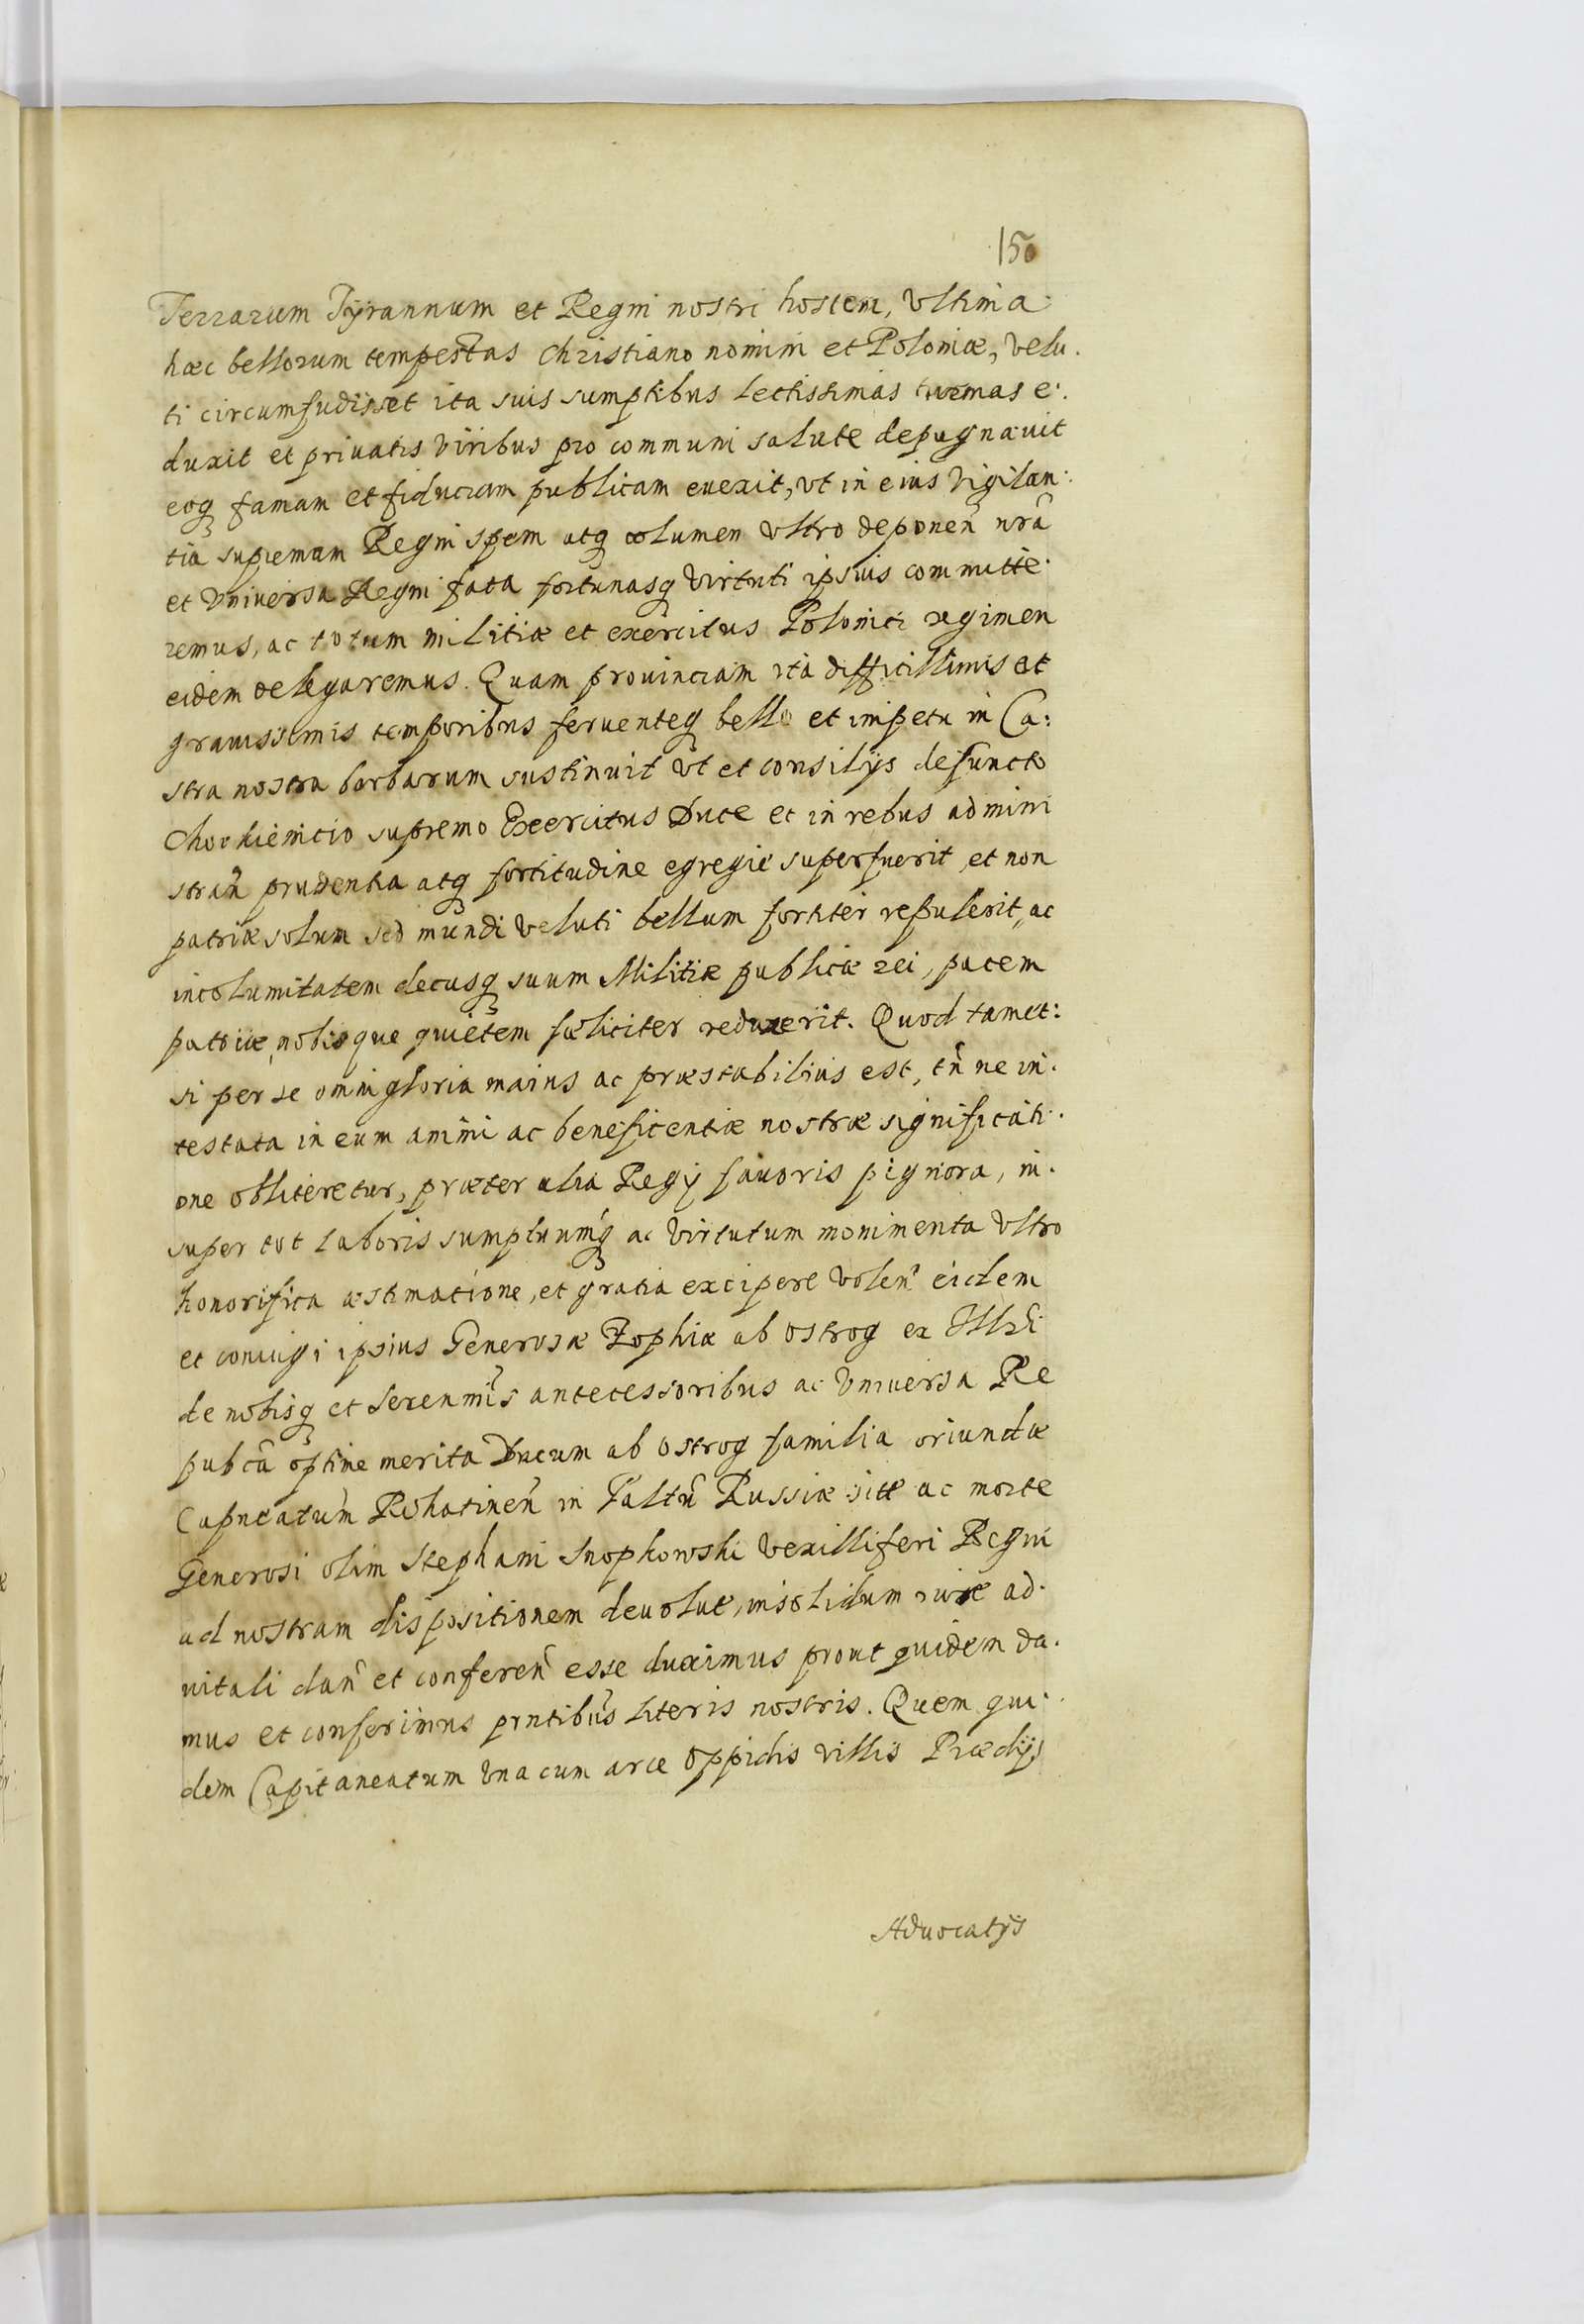 150
Terrarum Tyrannum et Regni nostri hostem, Vltima
hæc bellorum tempestas Christiano nomini et Poloniæ, velu.
ti circumfudisset ita suis sumptibus lectissimas turmas e.
duxit et priuatis viribus pro communi salute depugnauit
eoq famam et fiduciam publicam euexit, vt in eius vigilan:
tia supremam Regni spem atq columen vltro deponeñ nrã
et Vniuersa Regni fata fortunasq virtuti ipsius committe.
remus, ac totum militiæ et exercitus Polonici regimen
eidem delegaremus. Quam prouinciam ita difficillimis et
grauissimis temporibus feruenteq bello et impetu in Ca:
stra nostra barbarum sustinuit vt et consilijs defuncto
Chodkieuicio supremo Exercitus Duce et in rebus admini
strañ prudentia atq fortitudine egregie superfuerit et non
patriæ solum sed mundi veluti bellum fortiter repulerit, ac
incolumitatem decusq suum Militiæ publicæ rei, pacem
patriæ, nobisque quietem fœliciter reduxerit. Quod tamet:
si per se omni gloria maius ac præstabilius est, tñ ne in.
testata in eum animi ac beneficentiæ nostræ significati.
one oblitéretur, præter alia Regij fauoris pignora, in.
super tot laboris sumptuumq ac Virtutum monimenta Vltro
honorifica æstimatione, et gratia excipere voleñ eidem
et coniugi ipsius Generosæ Zophiæ ab Ostrog ex Illrĩ
de nobisq et Serenmis antecessoribus ac Vniuersa Re
pubcã optime merita Ducum ab Ostrog familia oriundæ
Capneatum Rohatineñ in Paltũ Russiæ sitt ac morte
Generosi olim Stephani Snopkowski Vexilliferi Regni
ad nostram dispositionem deuolut, insolidum iure ad.
uitali dañ et confereñ esse duximus prout quidem da.
mus et conferimus prntibus literis nostris. Quem qui.
dem Capitaneatum Vna cum arce Oppidis villis Prædijs
Aduocatijs